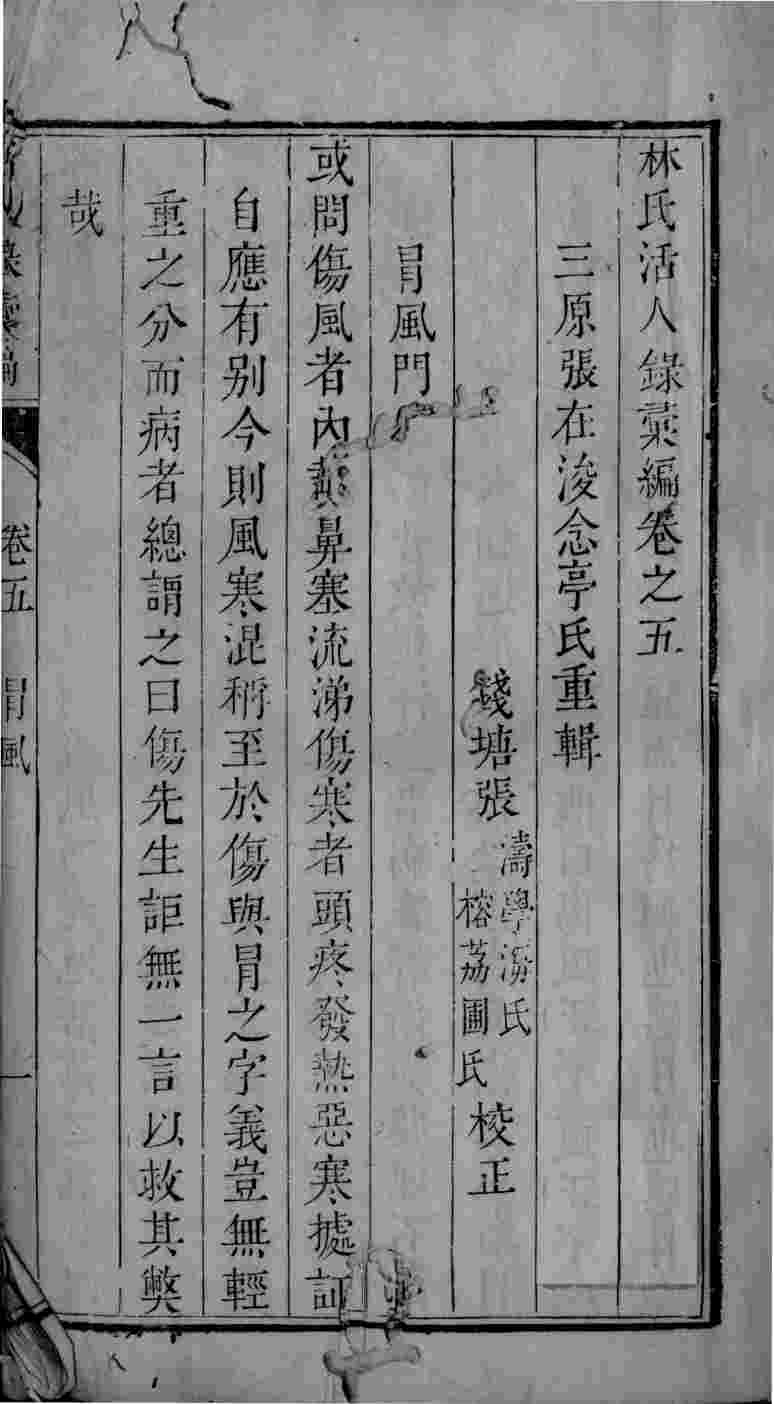 林氏活人錄彚編卷之五
三原張在浚念亭氏重輯
錢塘張
濤學海氏
榕荔圃氏
校正
冐風門
或問傷風者內熱鼻塞流涕傷寒者頭疼發熱惡寒據証
自應有别今則風寒混稱至於傷與冐之字義豈無輕
重之分而病者總謂之曰傷先生詎無一言以救其獘
哉
卷五 冐風 一